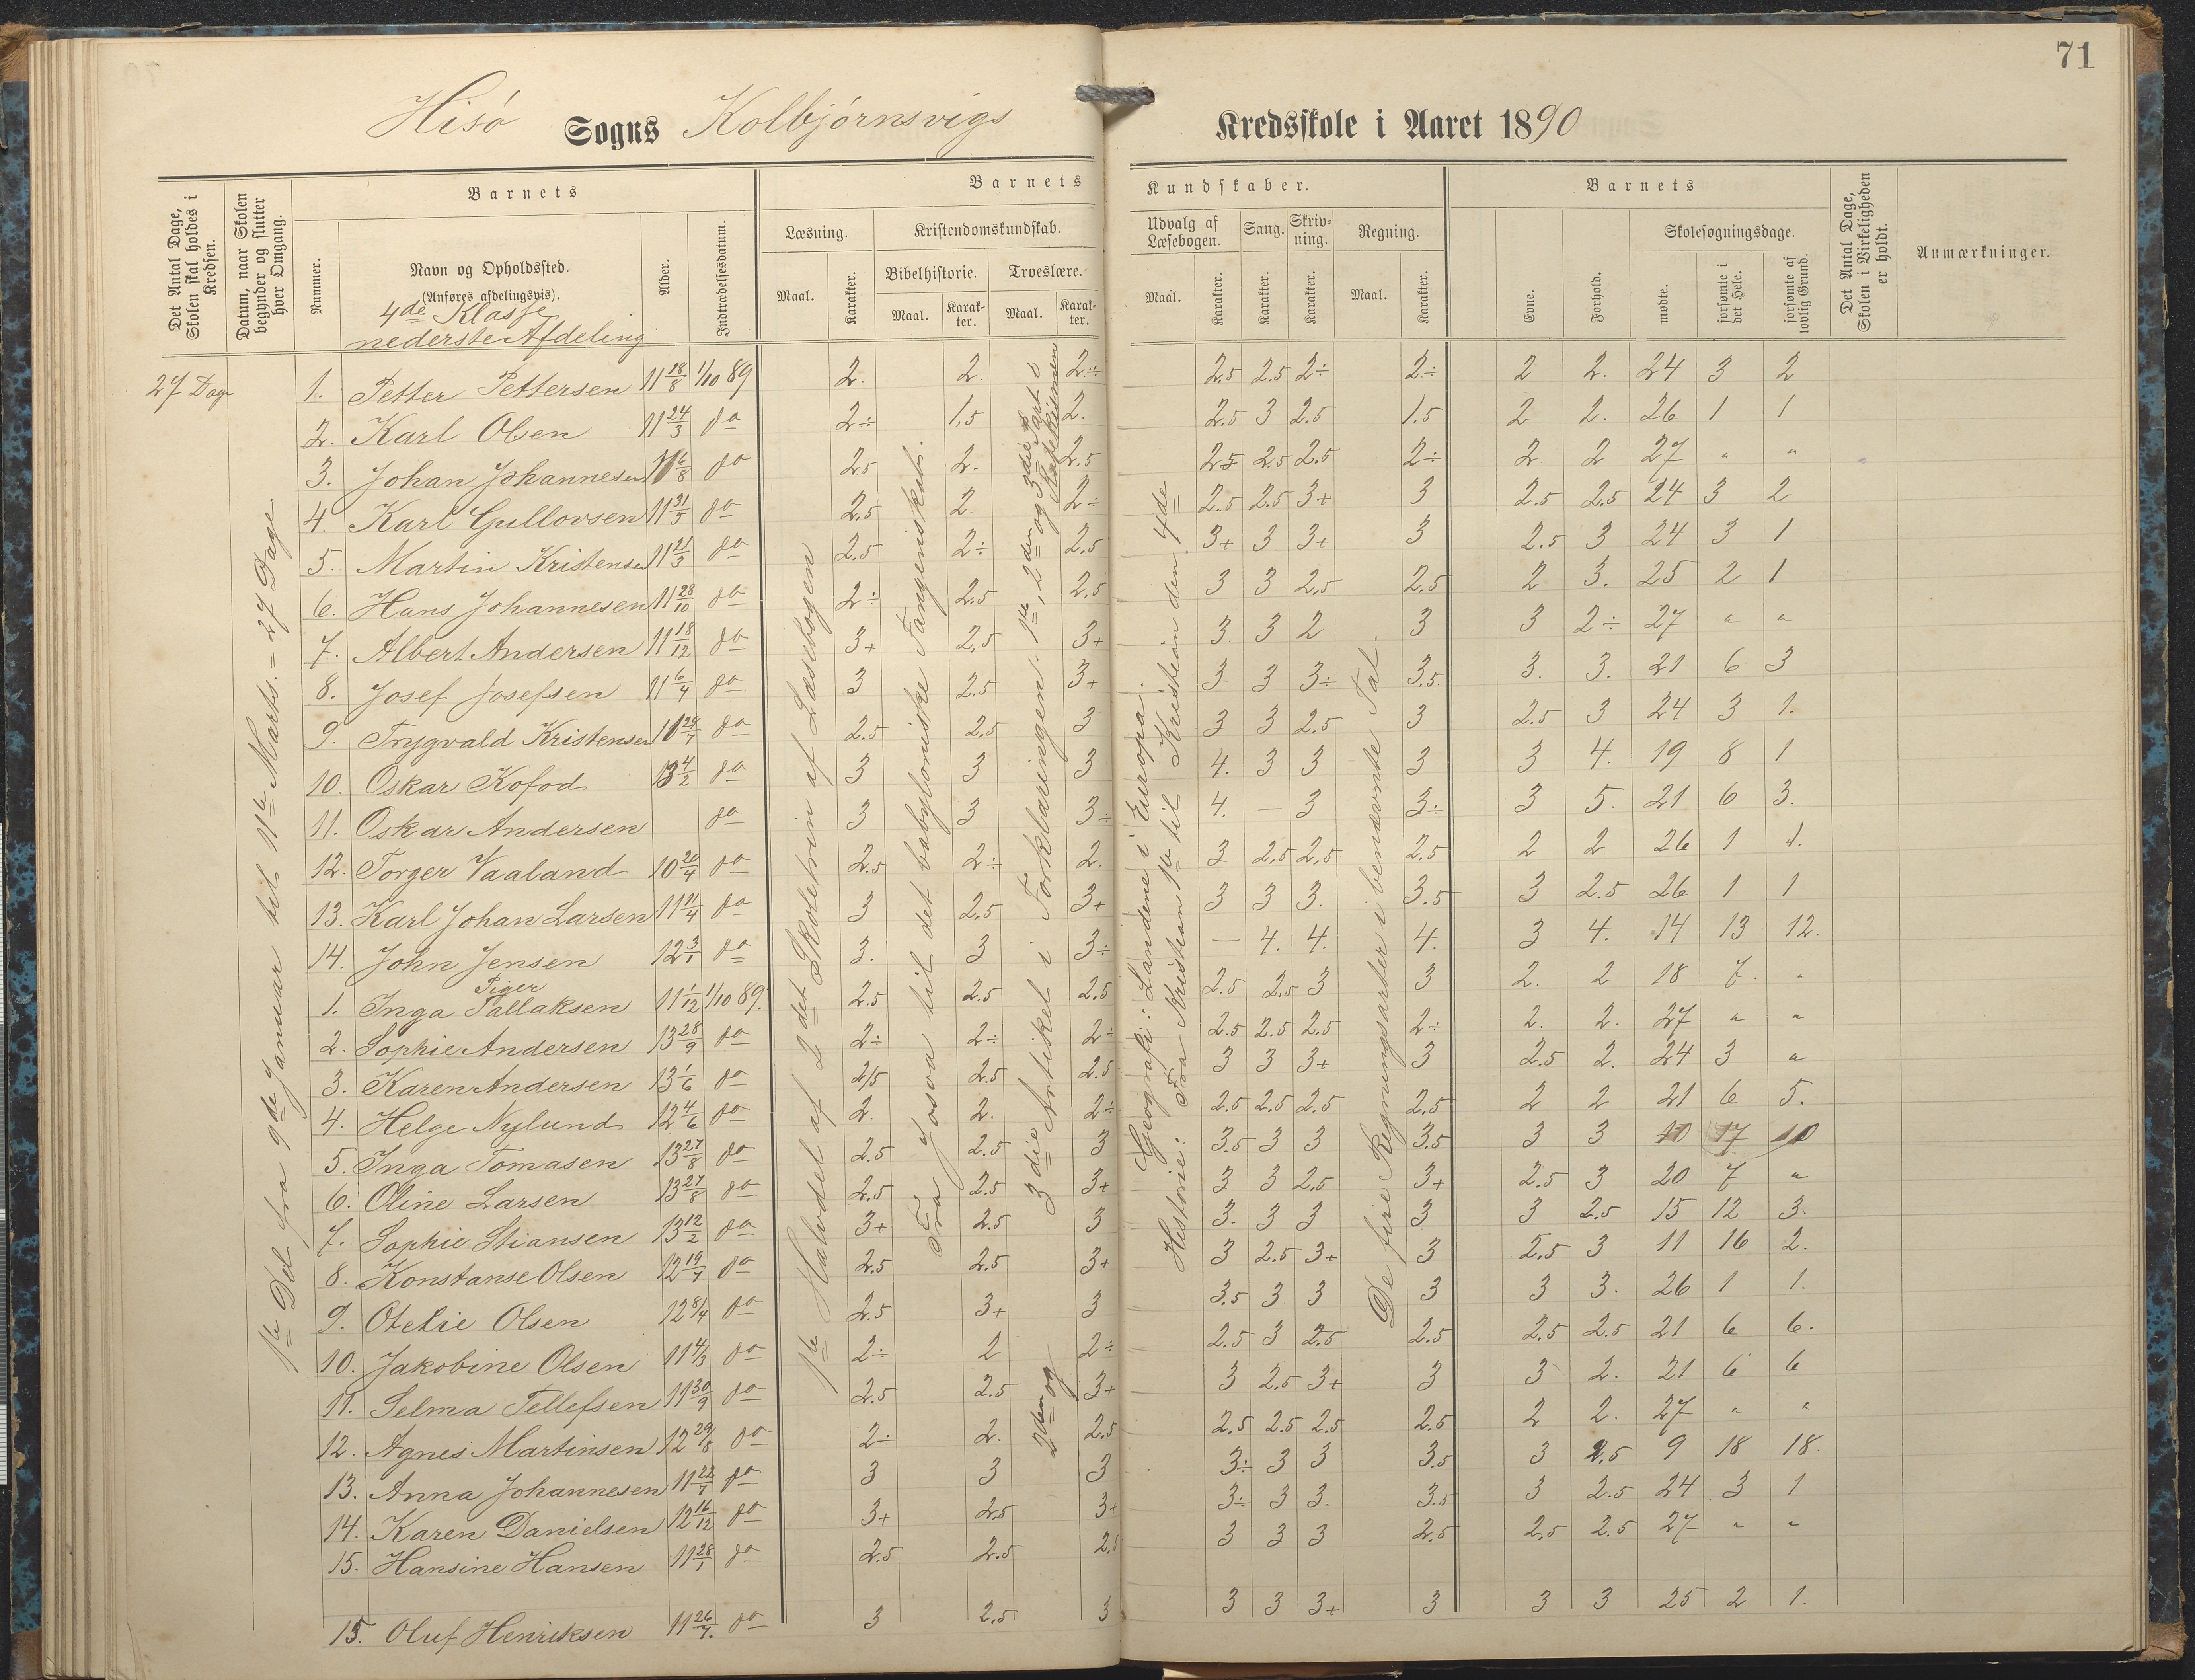 71
Hisö Sogns Kolbjörnsvigs Kredsskole i Aaret 1890
Det Antal Dage, Skolen skal holdes i Kredsen.
Datum, naar Skolen begynder og slutter hver Omgang.
Barnets
Nummer.
Navn og Opholdssted.
(Anføres afdelingsvis).
4de Klasse
nederste Afdeling
Alder.
Indtrædelsesdatum.
Barnets Kundskaber.
Læsning.
Maal.
Karakter.
Kristendomskundskab.
Bibelhistorie.
Maal.
Karakter.
Troeslære.
Maal.
Karakter.
Udvalg af Læsebogen.
Maal.
Karakter.
Sang.
Karakter.
Skrivning.
Karakter.
Regning.
Maal.
Karakter.
Barnets
Evne.
Forhold.
Skolesøgningsdage.
mødte.
forsømte i det Hele.
forsømte af lovlig Grund.
Det Antal Dage, Skolen i Virkeligheden er holdt.
Anmærkninger.
27 Dage
1te Del fra 9de Januar til 11te Marts. = 27 Dage
1te Halvdel af 2det Skoletrin af Læsebogen
Fra Josva til det babyloniske Fangenskab.
3die Artikel i Forklaringen. 1te, 2den og 3die Part i Katekismen
2den og
Geografi: Landene i Europa.
Historie: Fra Kristian 1te til Kristian den 4de
De fire Regningsarter i benævnte Tal.
1. Petter Pettersen 11 18/8 1/10 89 2. 2. 2÷ 2.5 2.5 2÷ 2÷ 2 2. 24 3 2
2. Karl Olsen 11 24/3 do 2÷ 1,5 2. 2.5 3 2.5 1.5 2 2. 26 1 1
3. Johan Johannesen 11 6/8 do 2.5 2. 2.5 2.5 2.5 2.5 2÷ 2. 2 27 " "
4. Karl Gullovsen 11 31/5 do 2.5 2. 2÷ 2.5 2.5 3+ 3 2.5 2.5 24 3 2
5. Martin Kristensen 11 21/3 do 2.5 2÷ 2.5 3+ 3 3+ 3 2.5 3 24 3 1
6. Hans Johannesen 11 28/10 do 2÷ 2.5 2.5 3 3 2.5 2.5 2 3. 25 2 1
7. Albert Andersen 11 18/12 do 3+ 2.5 3+ 3. 3 2 3 3 2÷ 27 " "
8. Josef Josefsen 11 6/4 do 3 2.5 3+ 3 3 3÷ 3.5. 3. 3. 21 6 3
9. Trygvald Kristensen 10 29/7 do 2.5 2.5 3 3 3 2.5 3 2.5 3 24 3 1.
10. Oskar Kofod 13 4/2 do 3 3 3 4. 3 3 3 3 4. 19 8 1
11. Oskar Andersen do 3 3 3÷ 4. — 3 3÷ 3 5. 21 6 3.
12. Torger Vaaland 10 20/4 do 2.5 2÷ 2. 3 2.5 2.5 2.5 2 2 26 1 1.
13. Karl Johan Larsen 11 11/4 do 3 2.5 3+ 3 3 3. 3.5 3 2.5 26 1 1
14. John Jensen 12 3/1 do 3. 3 3÷ — 4. 4. 4. 3 4. 14 13 12.
Piger
1. Inga Tallaksen 11 1/12 1/10 89. 2.5 2.5 2.5 2.5 2.5 3 3 2. 2 18 7. "
2. Sophie Andersen 13 28/9 do 2÷ 2÷ 2÷ 2.5 2.5 2.5 2÷ 2. 2. 27 " "
3. Karen Andersen 13 1/6 do 2.5 2.5 2.5 3 3 3+ 3 2.5 2. 24 3 "
4. Helge Nylund 12 4/6 do 2. 2. 2÷ 2.5 2.5 2.5 2.5 2 2 21 6 5.
5. Inga Tomasen 13 27/8 do 2.5 2.5 3 3.5 3 3 3.5 3 3 10 17 10
6. Oline Larsen 13 27/8 do 2.5 2.5 3+ 3 3 2.5 3+ 2.5 3 20 7 "
7. Sophie Stiansen 13 12/2 do 3+ 2.5 3 3. 3 3 3 3 2.5 15 12 3.
8. Konstanse Olsen 12 19/7 do 2.5 2.5 3+ 3 2.5 3+ 3 2.5 3 11 16 2.
9. Otelie Olsen 12 8/4 do 2.5 3+ 3 3.5 3 3 3 3 3. 26 1 1.
10. Jakobine Olsen 11 4/3 do 2÷ 2 2÷ 2.5 3 2.5 2.5 2.5 2.5 21 6 6.
11. Selma Tellefsen 11 30/9 do 2.5 2.5 3+ 3 2.5 3+ 3 3 2. 21 6 6
12. Agnes Martinsen 12 29/8 do 2÷ 2. 2.5 2.5 2.5 2.5 2.5 2 2. 27 " "
13. Anna Johannesen 11 22/7 do 3 3 3 3÷ 3 3 3.5 3 2,5 9 18 18.
14. Karen Danielsen 12 16/12 do 3+ 2.5 3+ 3÷ 3 3. 3.5 3 2.5 24 3 1
15. Hansine Hansen 11 28/1 do 2.5 2.5 2.5 3 3 3 2.5 2.5 2.5 27 " "
15. Oluf Henriksen 11 26/7. do 3 2.5 3 3 3 3+ 3 3 3 25 2 1.